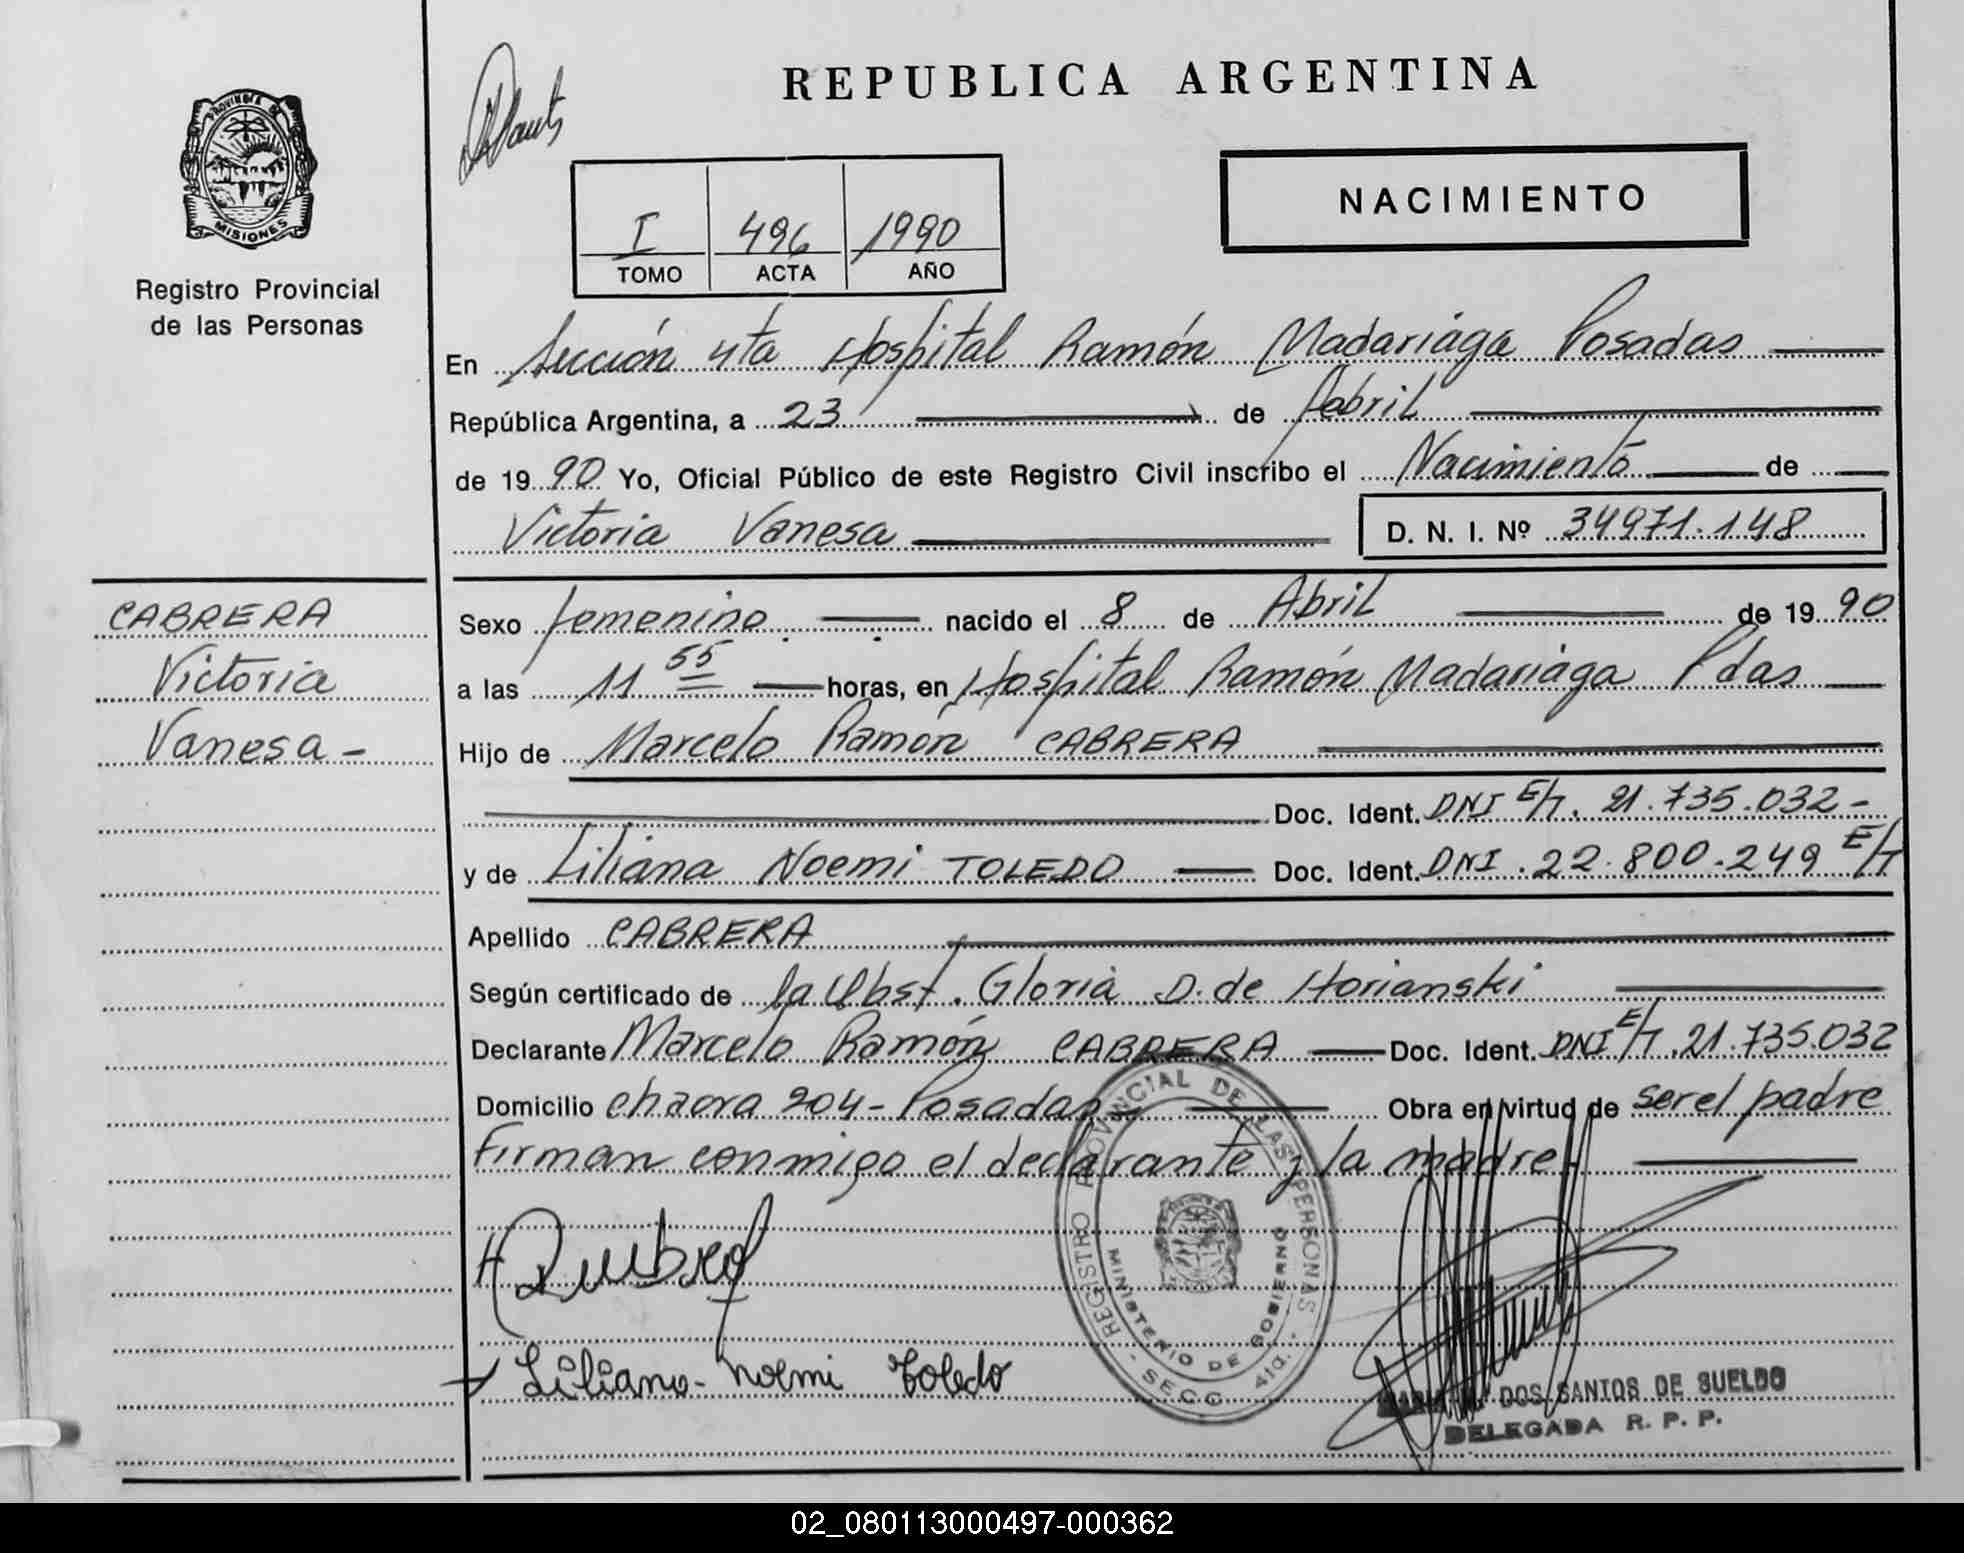 REPUBLICA ARGENTINA
PROVINCIA DE
MISIONES
Registro Provincial
de las Personas
NACIMIENTO
I 496 1990
TOMO ACTA AÑO
En Sección 4ta Hospital Ramón Madariaga Posadas
República Argentina, a 23 de Abril
de 1990 Yo, Oficial Público de este Registro Civil inscribo el Nacimiento de
Victoria Vanesa D. N. I. Nº 34971.148
CABRERA
Victoria
Vanesa -
Sexo femenino nacido el 8 de Abril de 1990
a las 11 55 horas, en Hospital Ramón Madariaga Pdas
Hijo de Marcelo Ramón CABRERA
Doc. Ident. DNI E/T. 21.735.032-
y de Liliana Noemi TOLEDO Doc. Ident. DNI. 22.800.249 E/T
Apellido CABRERA
Según certificado de la Obst. Gloria D. de Horianski
Declarante Marcelo Ramón CABRERA Doc. Ident. DNI E/T. 21.735.032
Domicilio chacra 204 - Posadas - Obra en virtud de ser el padre
Firman conmigo el declarante y la madre.
REGISTRO PROVINCIAL DE LAS PERSONAS
MINISTERIO DE GOBIERNO
- SECC. 4ta. -
Liliana - Noemi Toledo
DOS SANTOS DE SUELDO
DELEGADA R. P. P.
02_080113000497-000362